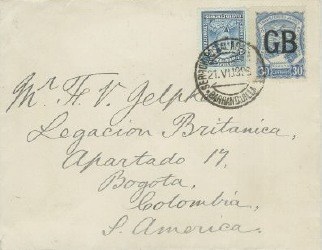 GB
30 30
BARRANQUILLA
Mr. F. V.
Legacion Britanica,
Apartado 17,
Bogota,
Colombia,
S. America.